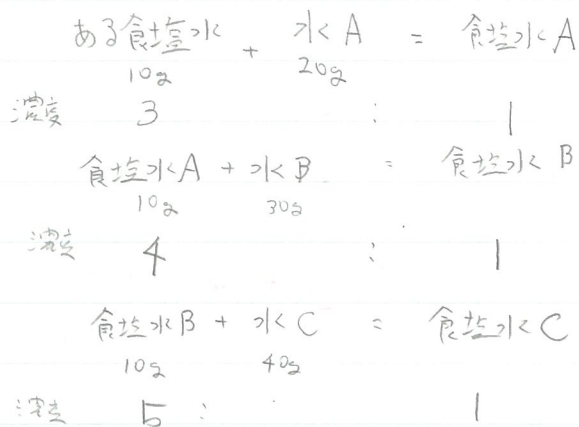 ある食塩水 + 水A = 食塩水A
10g 20g
濃度 3 : 1
食塩水A + 水B = 食塩水B
10g 30g
濃度 4 : 1
食塩水B + 水C = 食塩水C
10g 40g
濃度 5 : 1